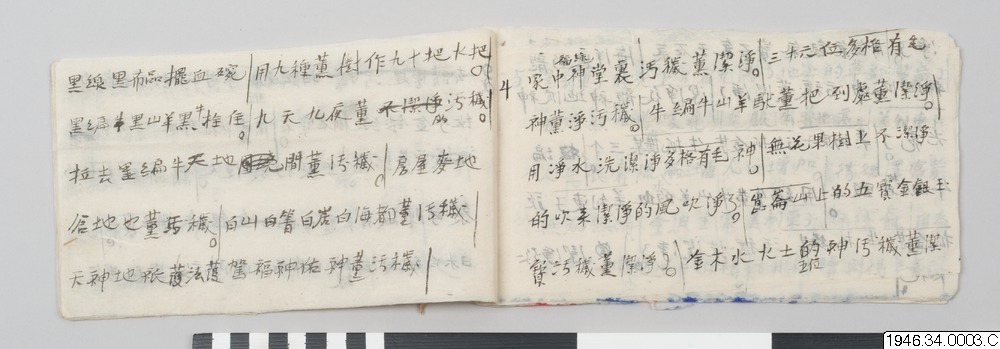 黑線黑布品擺血碗用九種薰樹作九十把火把。
黑編牛黑山羊黑牛拴住。九天九夜薰不潔淨的污穢。
拉去黑編牛天地間薰污穢。房屋麥地
倉地也薰污穢。白山白箐白岩白海都薰污穢
天神地祇護法護駕福神佑神薰污穢
4
家中神堂裏污穢薰潔淨。三十六位多格有毛
神薰淨污穢。牛編牛山羊馱薰把到處薰潔淨。
用净水洗潔淨多格有毛神。無花果樹上不潔淨
的吹来潔淨的風吹淨了。崑崙山上的五寶金銀玉
寶污穢薰潔淨了。金木水火土的五位神污穢薰潔
1946.34.0003.C